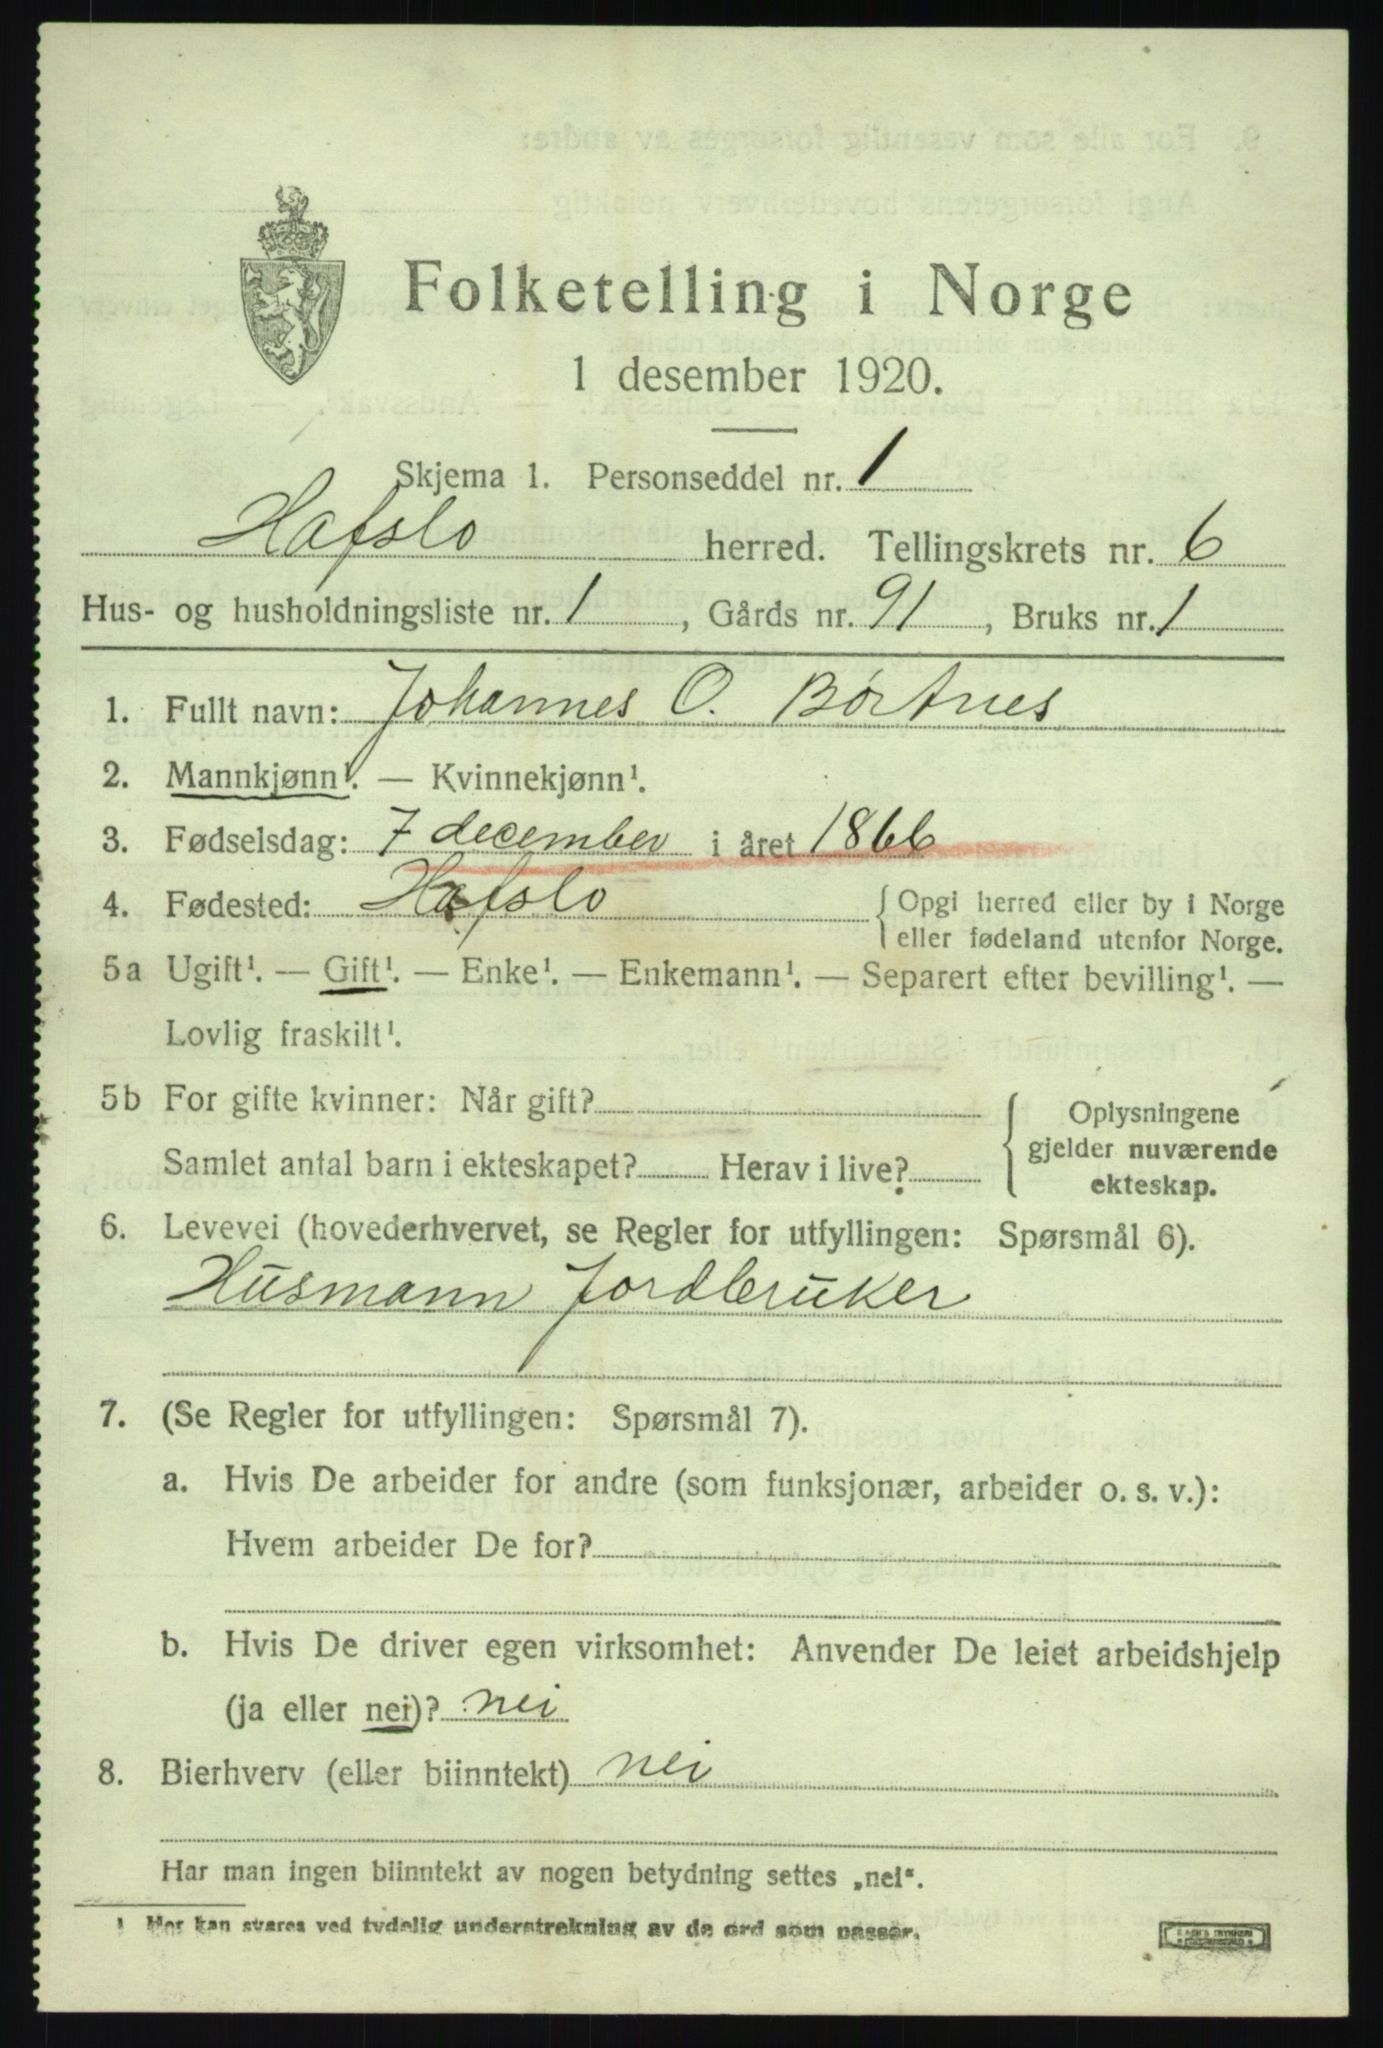 Folketelling i Norge
1 desember 1920.
Skjema 1. Personseddel nr. 1
Hafslo herred. Tellingskrets nr. 6
Hus- og husholdningsliste nr. 1, Gårds nr. 91, Bruks nr. 1
1. Fullt navn: Johannes O. Børtnes
2. Mannkjønn¹. — Kvinnekjønn¹.
3. Fødselsdag: 7 december i året 1866
4. Fødested: Hafslo { Opgi herred eller by i Norge
eller fødeland utenfor Norge.
5a Ugift¹. — Gift¹. — Enke¹. — Enkemann¹. — Separert efter bevilling¹. —
Lovlig fraskilt¹.
5b For gifte kvinner: Når gift?
Samlet antal barn i ekteskapet? Herav i live?
{ Oplysningene
gjelder nuværende
ekteskap.
6. Levevei (hovederhvervet, se Regler for utfyllingen: Spørsmål 6).
Husmann Jordbruker
7. (Se Regler for utfyllingen: Spørsmål 7).
a. Hvis De arbeider for andre (som funksjonær, arbeider o. s. v.):
Hvem arbeider De for?
b. Hvis De driver egen virksomhet: Anvender De leiet arbeidshjelp
(ja eller nei)? nei
8. Bierhverv (eller biinntekt) nei
Har man ingen biinntekt av nogen betydning settes „nei“.
¹ Her kan svares ved tydelig understrekning av de ord som passer.